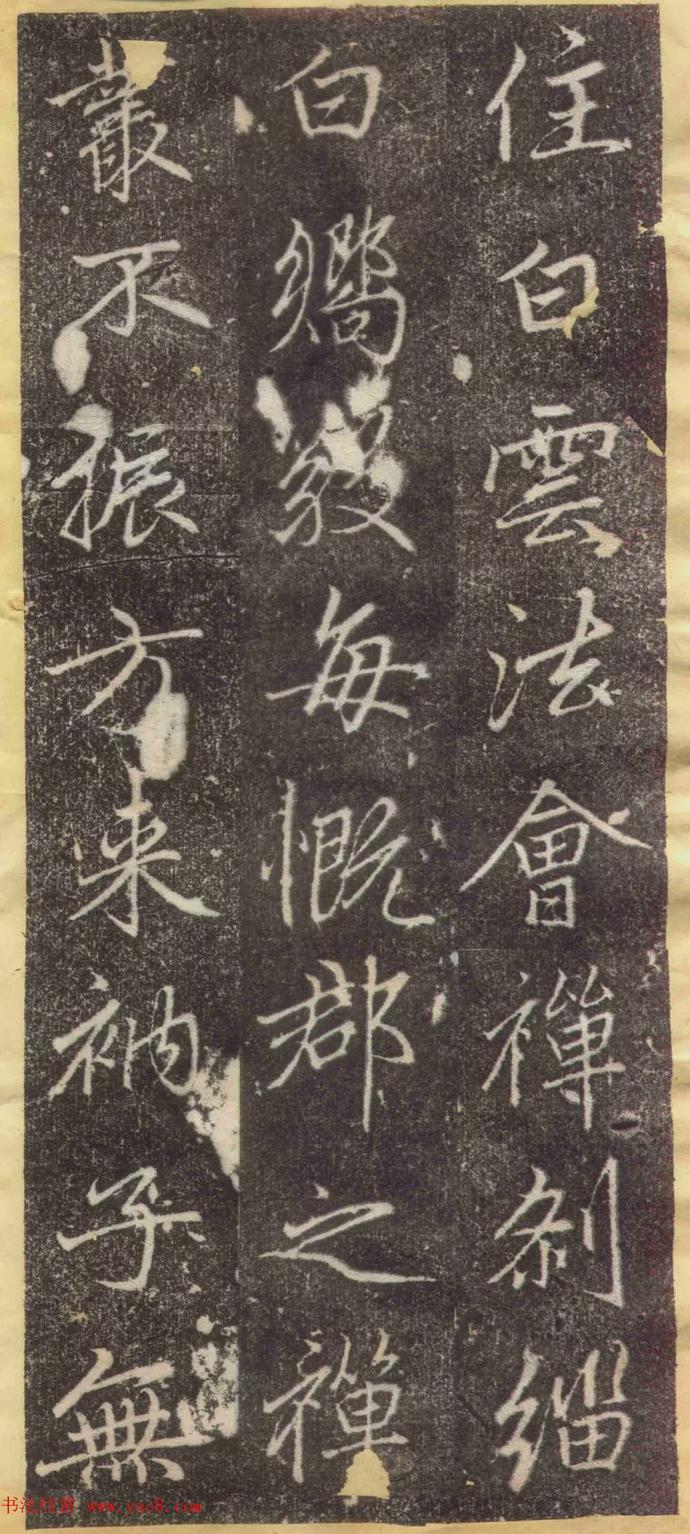 住白雲法會禪刹緇
白嚮每慨郡之禪
叢不振方来衲子無
书法欣赏 www.yac8.com